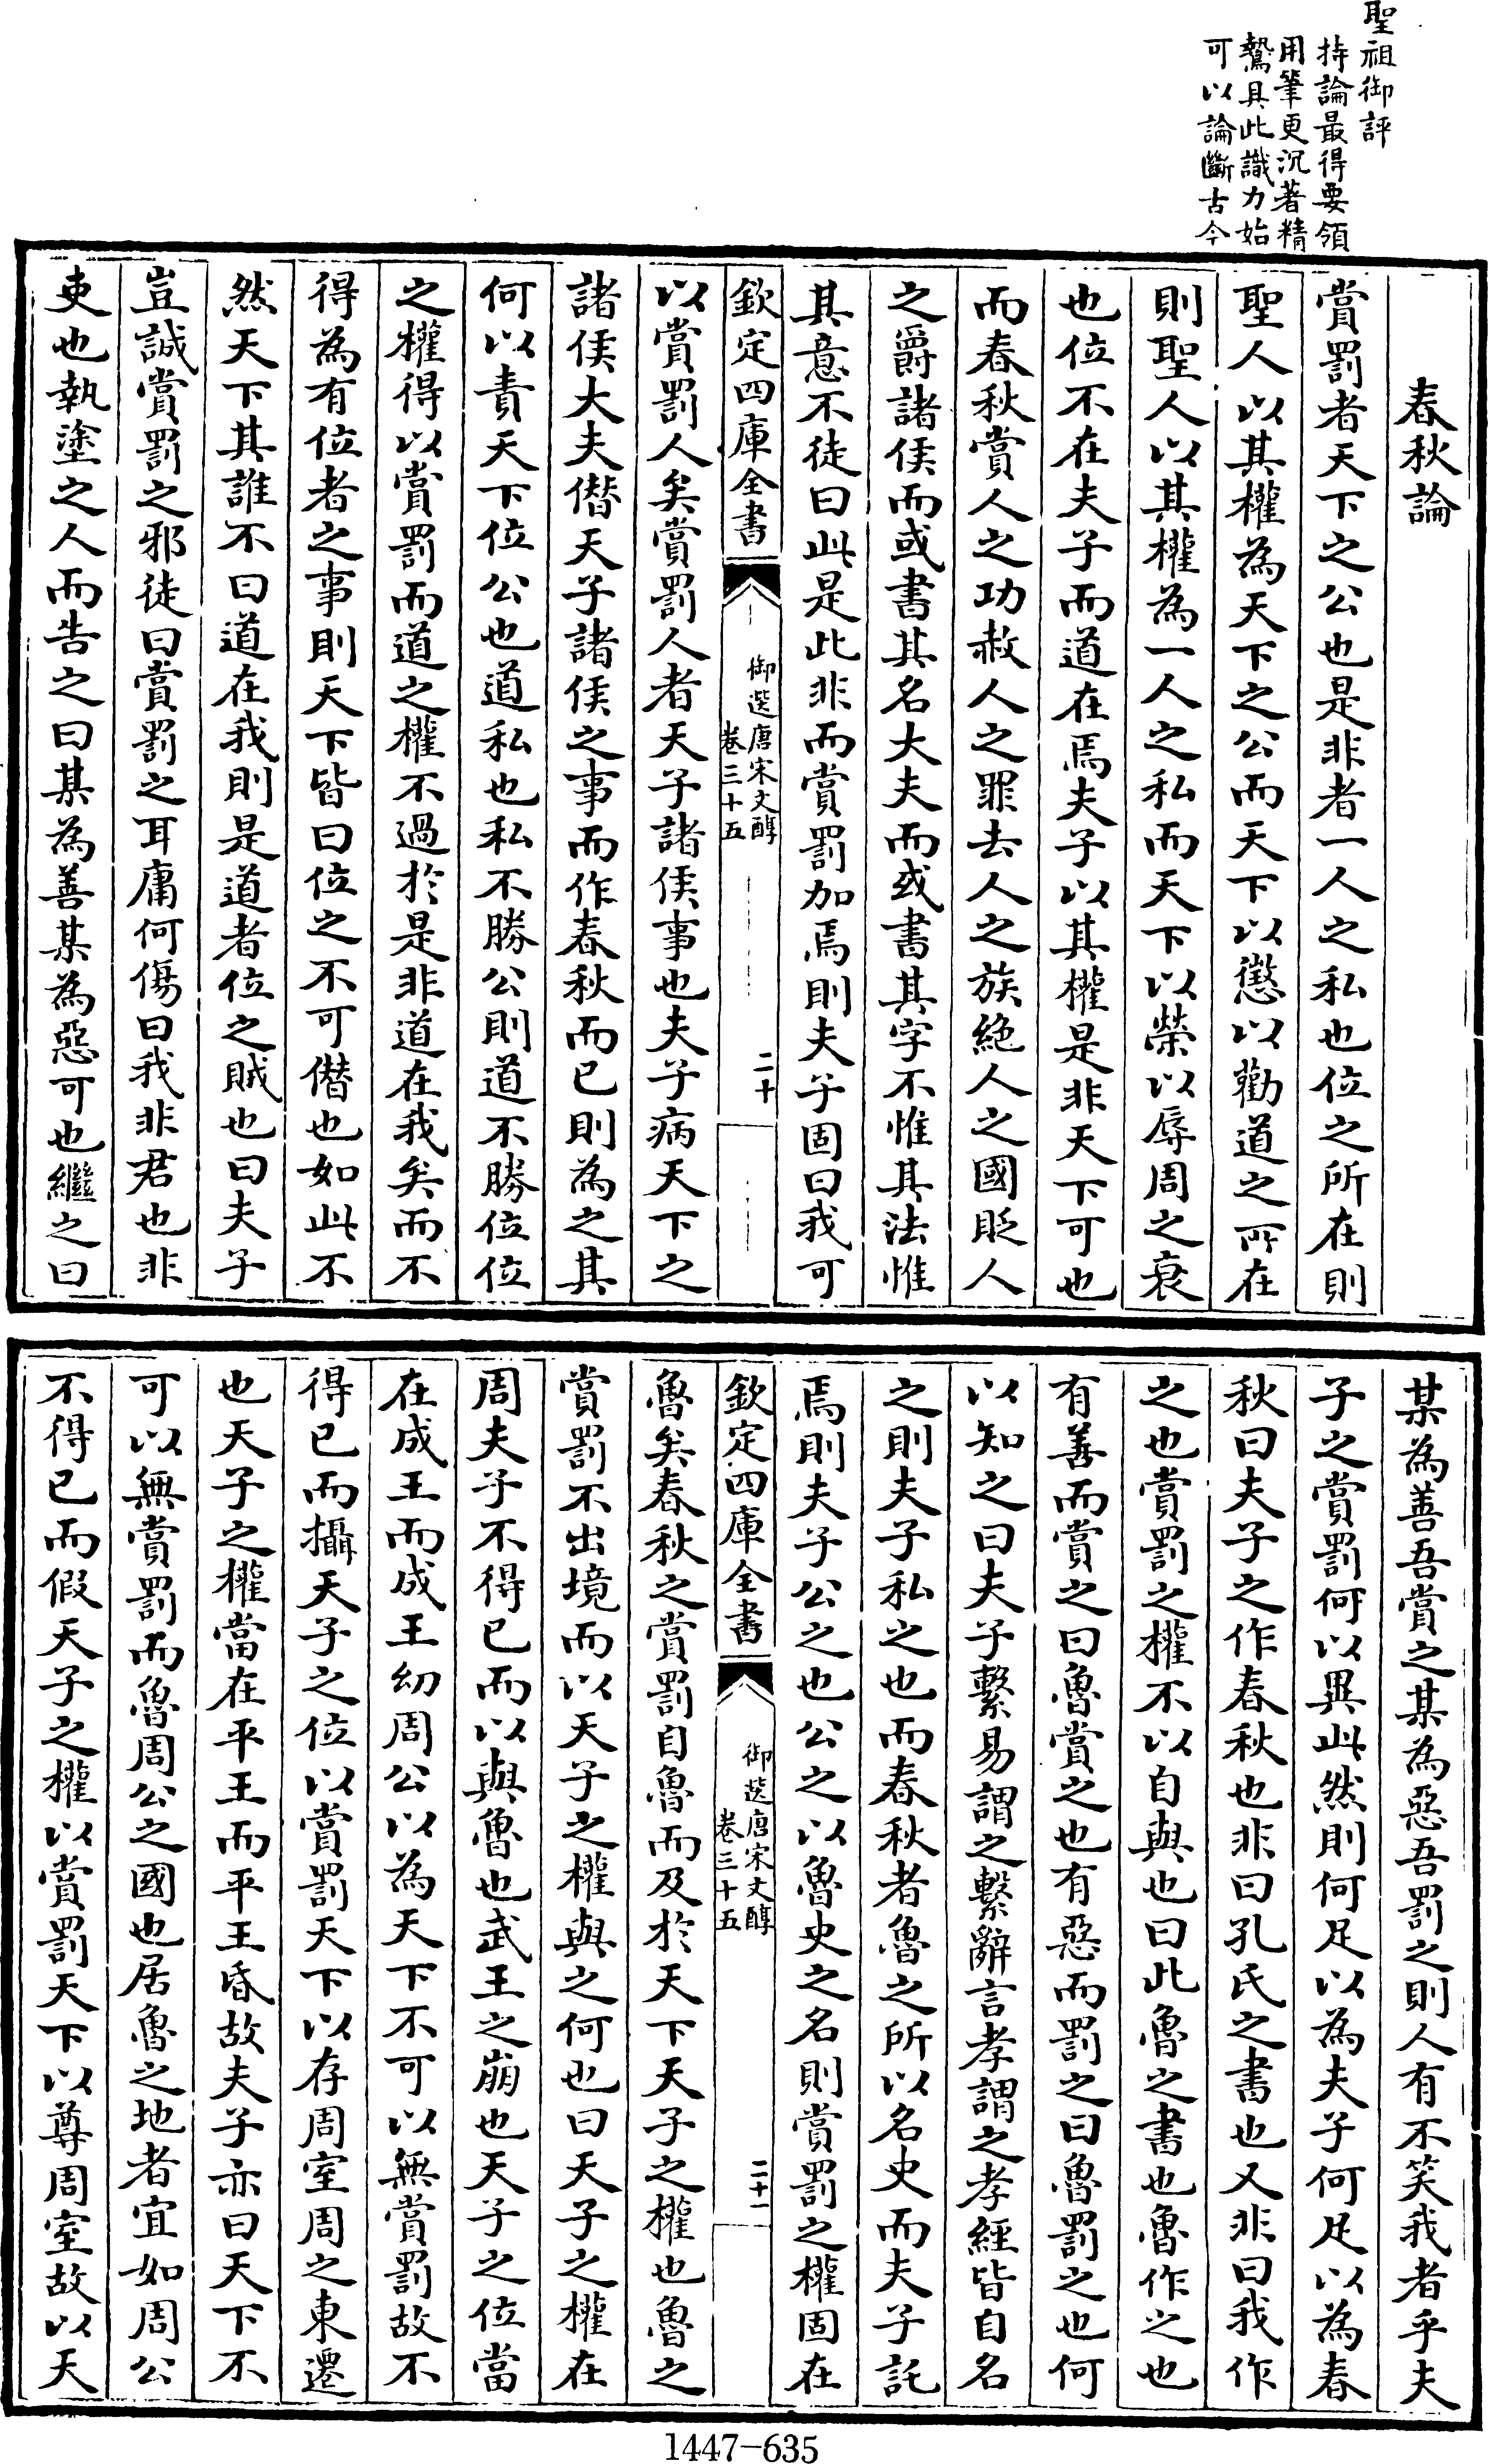 聖祖御評
持論最得要領
用筆更沉著精
鷙具此識力始
可以論斷古今
春秋論
賞罰者天下之公也是非者一人之私也位之所在則
聖人以其權為天下之公而天下以懲以勸道之所在
則聖人以其權為一人之私而天下以榮以辱周之衰
也位不在夫子而道在焉夫子以其權是非天下可也
而春秋賞人之功赦人之罪去人之族絶人之國貶人
之爵諸侯而或書其名大夫而或書其字不惟其法惟
其意不徒曰此是此非而賞罰加焉則夫子固曰我可
欽定四庫全書
御選唐宋文醇
卷三十五
二十
以賞罰人矣賞罰人者天子諸侯事也夫子病天下之
諸侯大夫僭天子諸侯之事而作春秋而已則為之其
何以責天下位公也道私也私不勝公則道不勝位位
之權得以賞罰而道之權不過於是非道在我矣而不
得為有位者之事則天下皆曰位之不可僭也如此不
然天下其誰不曰道在我則是道者位之賊也曰夫子
豈誠賞罰之邪徒曰賞罰之耳庸何傷曰我非君也非
吏也執塗之人而告之曰某為善某為惡可也繼之曰
某為善吾賞之某為惡吾罰之則人有不笑我者乎夫
子之賞罰何以異此然則何足以為夫子何足以為春
秋曰夫子之作春秋也非曰孔氏之書也又非曰我作
之也賞罰之權不以自與也曰此魯之書也魯作之也
有善而賞之曰魯賞之也有惡而罰之曰魯罰之也何
以知之曰夫子繫易謂之繫辭言孝謂之孝經皆自名
之則夫子私之也而春秋者魯之所以名史而夫子託
焉則夫子公之也公之以魯史之名則賞罰之權固在
欽定四庫全書
御選唐宋文醇
卷三十五
二十一
魯矣春秋之賞罰自魯而及於天下天子之權也魯之
賞罰不出境而以天子之權與之何也曰天子之權在
周夫子不得已而以與魯也武王之崩也天子之位當
在成王而成王幼周公以為天下不可以無賞罰故不
得已而攝天子之位以賞罰天下以存周室周之東遷
也天子之權當在平王而平王昏故夫子亦曰天下不
可以無賞罰而魯周公之國也居魯之地者宜如周公
不得已而假天子之權以賞罰天下以尊周室故以天
1447-635